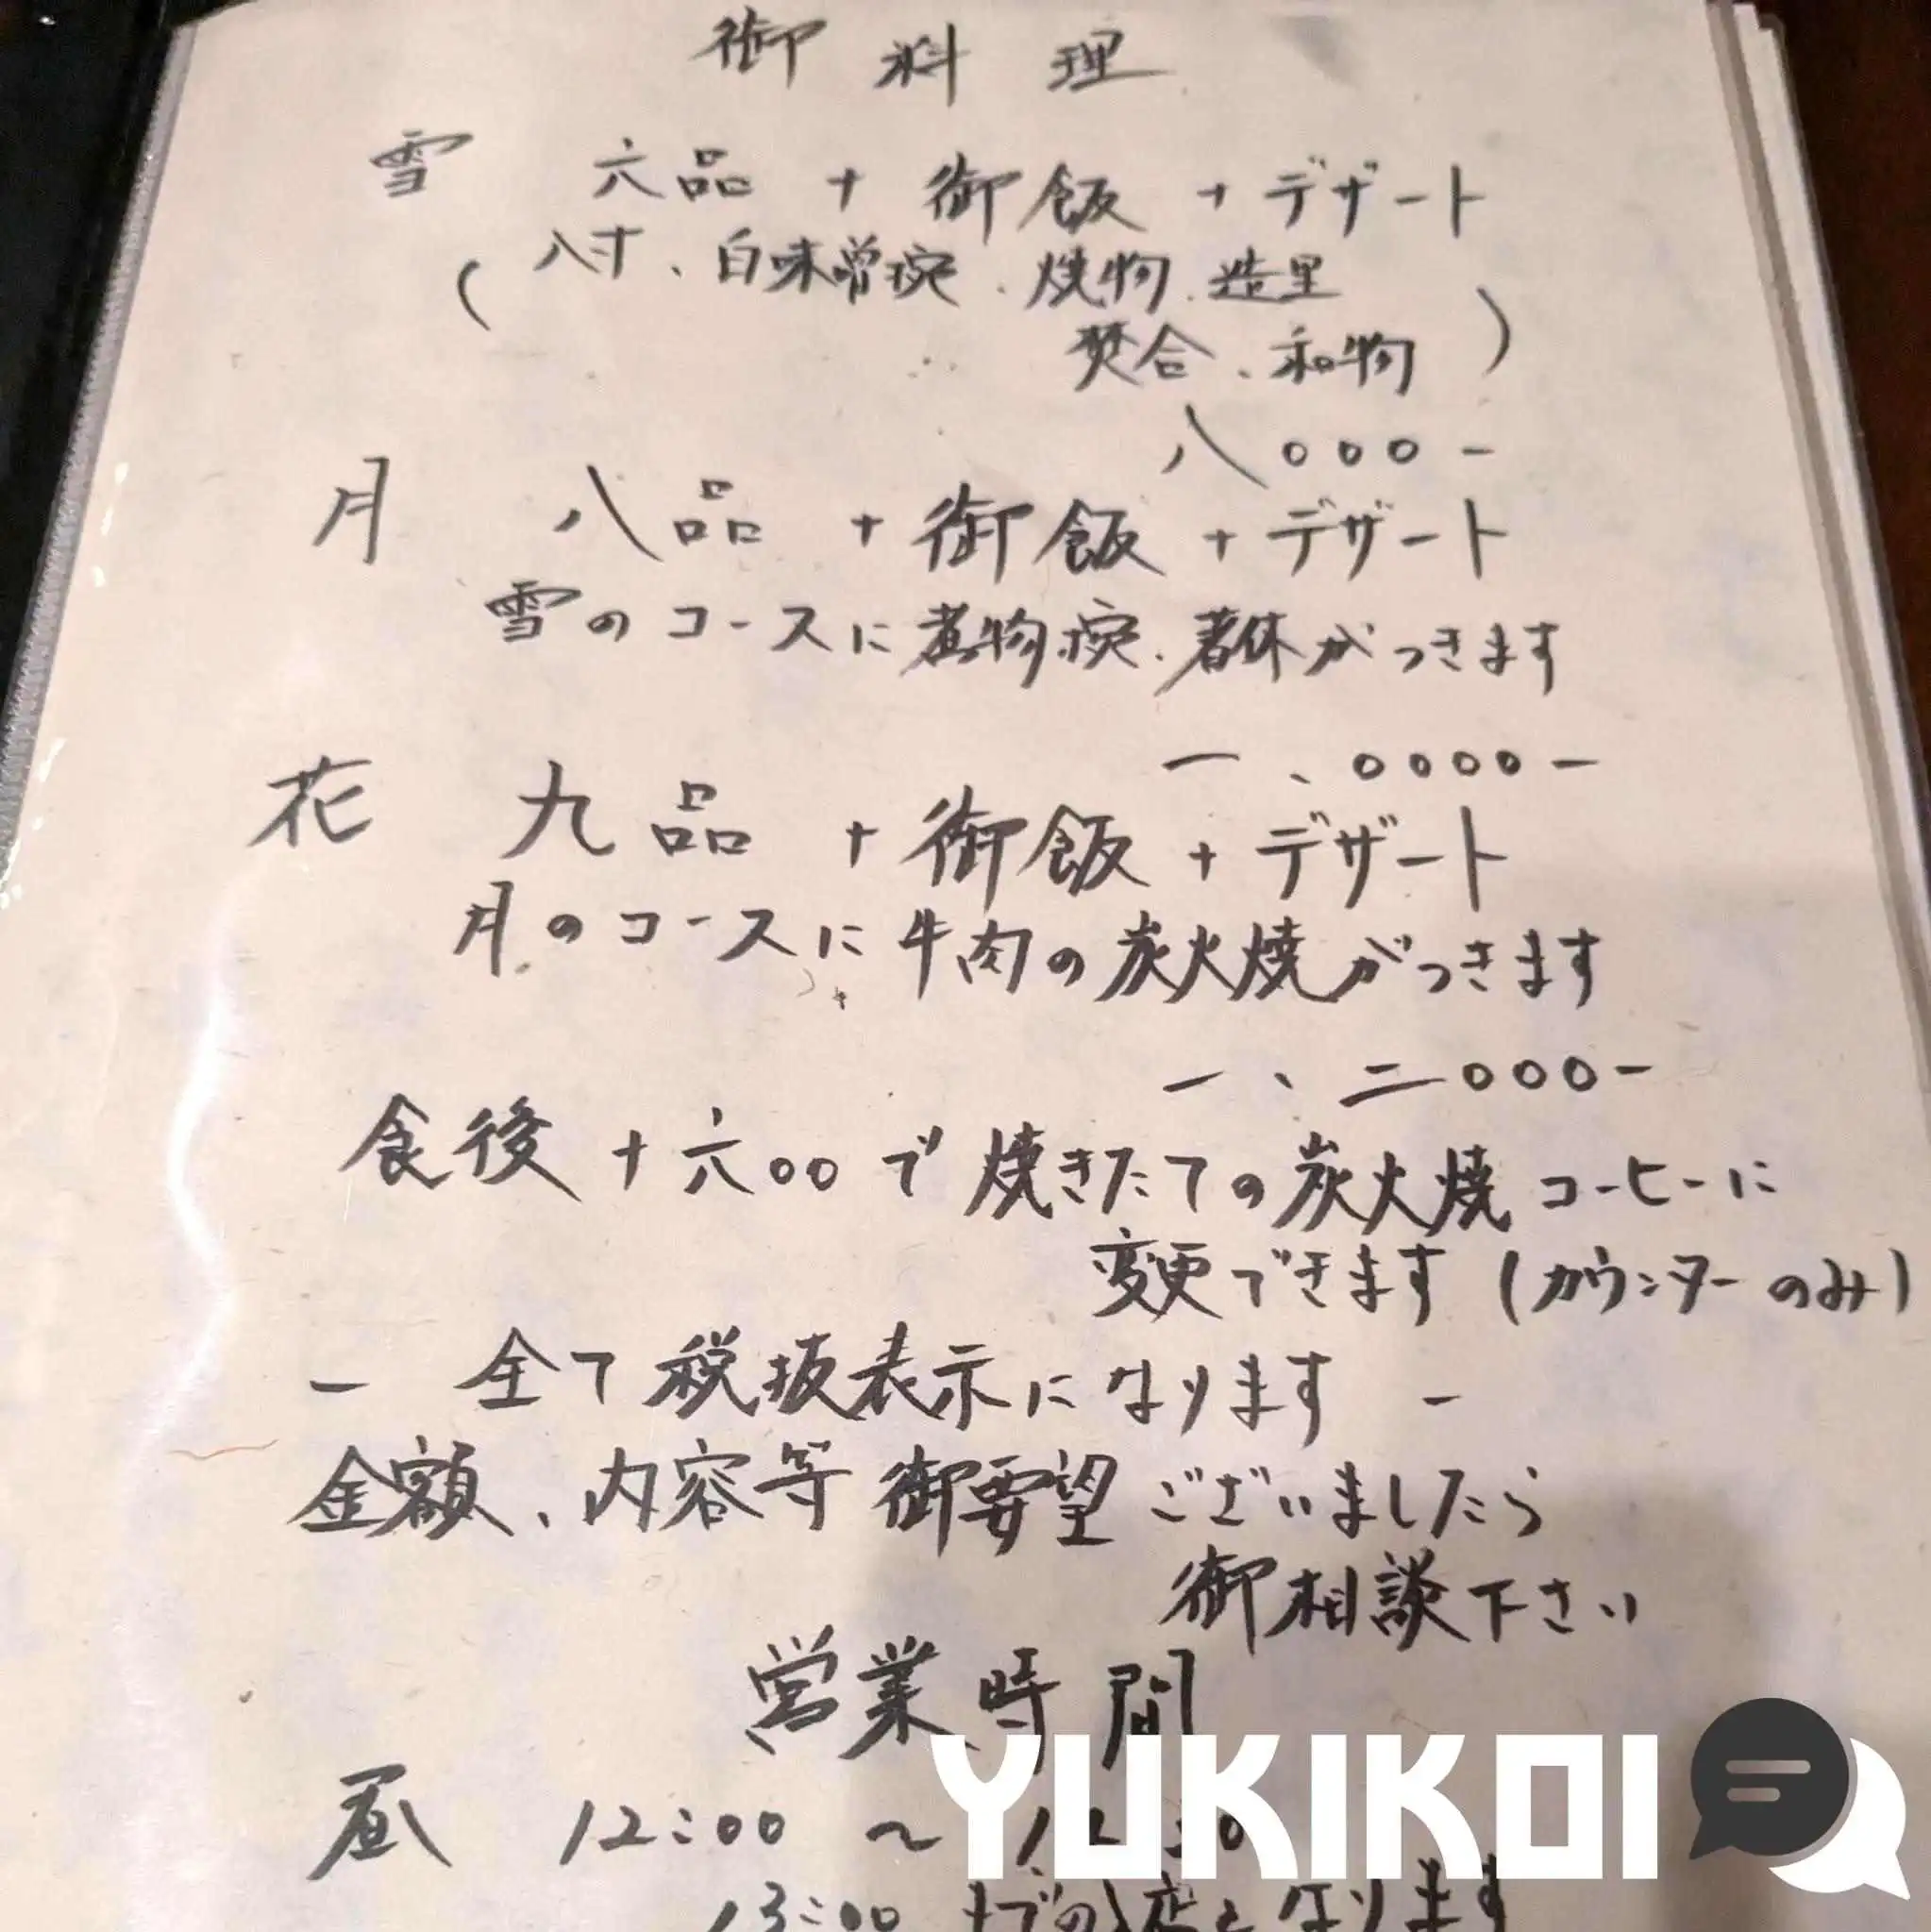 御料理
雪 六品 + 御飯 + デザート
(八寸、白味噌椀、焼物、造里
焚合、和物)
八〇〇〇-
月 八品 + 御飯 + デザート
雪のコースに煮物椀、箸休がつきます
一、〇〇〇〇-
花 九品 + 御飯 + デザート
月のコースに牛肉の炭火焼がつきます
一、二〇〇〇-
食後+六〇〇で焼きたての炭火焼コーヒーに
変更できます(カウンターのみ)
- 全て税抜表示になります -
金額、内容等御要望ございましたら
御相談下さい
営業時間
昼 12:00 〜
YUKIKOI
13:00 までの入店となります